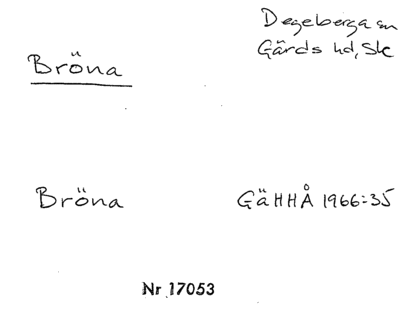 Degeberga sn
Gärds hd, Sk
Bröna
Bröna GäHHÅ 1966:35
Nr 17053